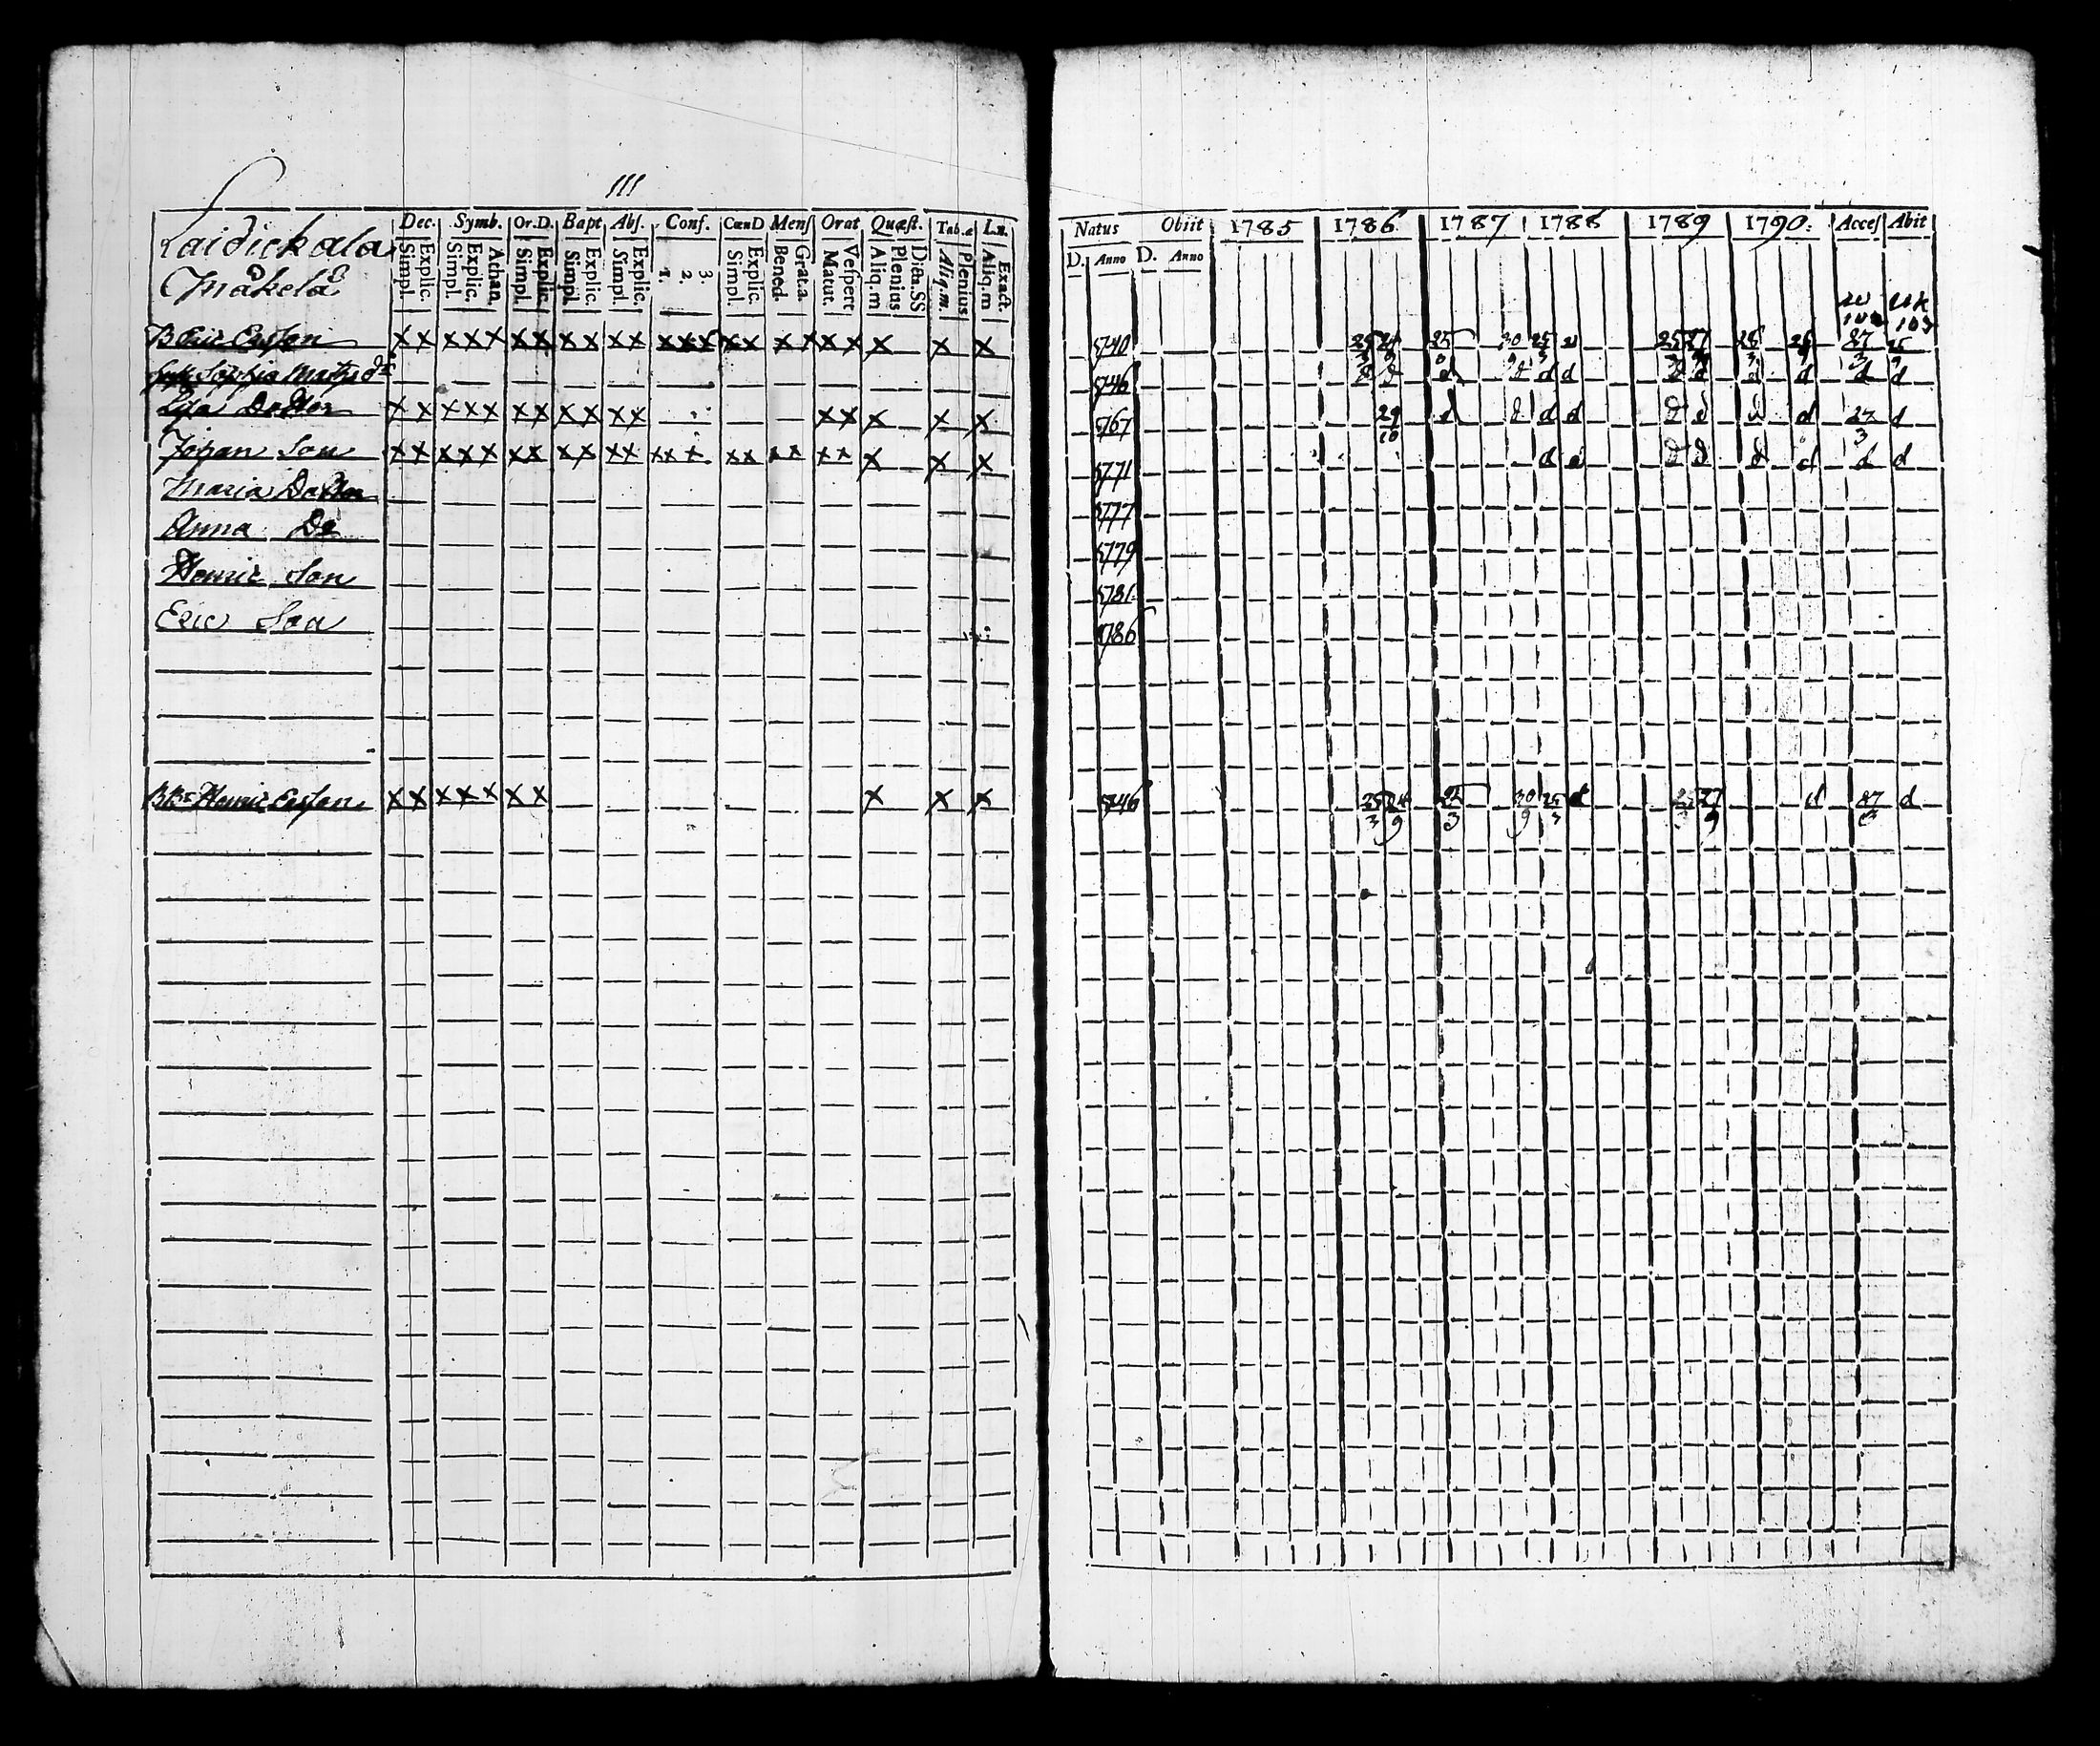 111
Laidickala
Mäkelä
Dec. Symb. Or.D. Bapt Abſ. Conf. CœnD Menſ Orat Quæſt. Tab.æ L.n.
Explic. Simpl. Athan. Explic. Simpl. Explic. Simpl. Explic. Simpl. Explic. Simpl. 3. 2. 1. Explic. Simpl. Grat.a Bened. Veſpert Matut. Dicta.SS Plenius Aliq.m Plenius Aliq.m. Exact. Aliq.m
Natus Obiit 1785 1786 1787 1788 1789 1790. Acceſ Abit
D. Anno D. Anno
B Eric Ersson x x x x x x x x x x x x x x x x x x x x x x x 1740 25/3 24/9 25 30/9 25/3 d 25 27 25/3 26/9 27/3
Sophia Matsd:r 1746 d d d d d d d d d d d d
Lisa Dotter x x x x x x x x x x x x x x x x 1767 29/10 d d d d d d d d 27/3 d
Johan Son x x x x x x x x x x x x x x x x x x x x x x x 1771 d d d d d d d d
Maria Dotter 1777
Anna Do 1779
Henric Son 1781
Eric Son 1786
B Br Henric Ersson x x x x x x x x x x 1746 25/3 24/9 25/3 30/9 25/3 d 27/9 d 27/3 d